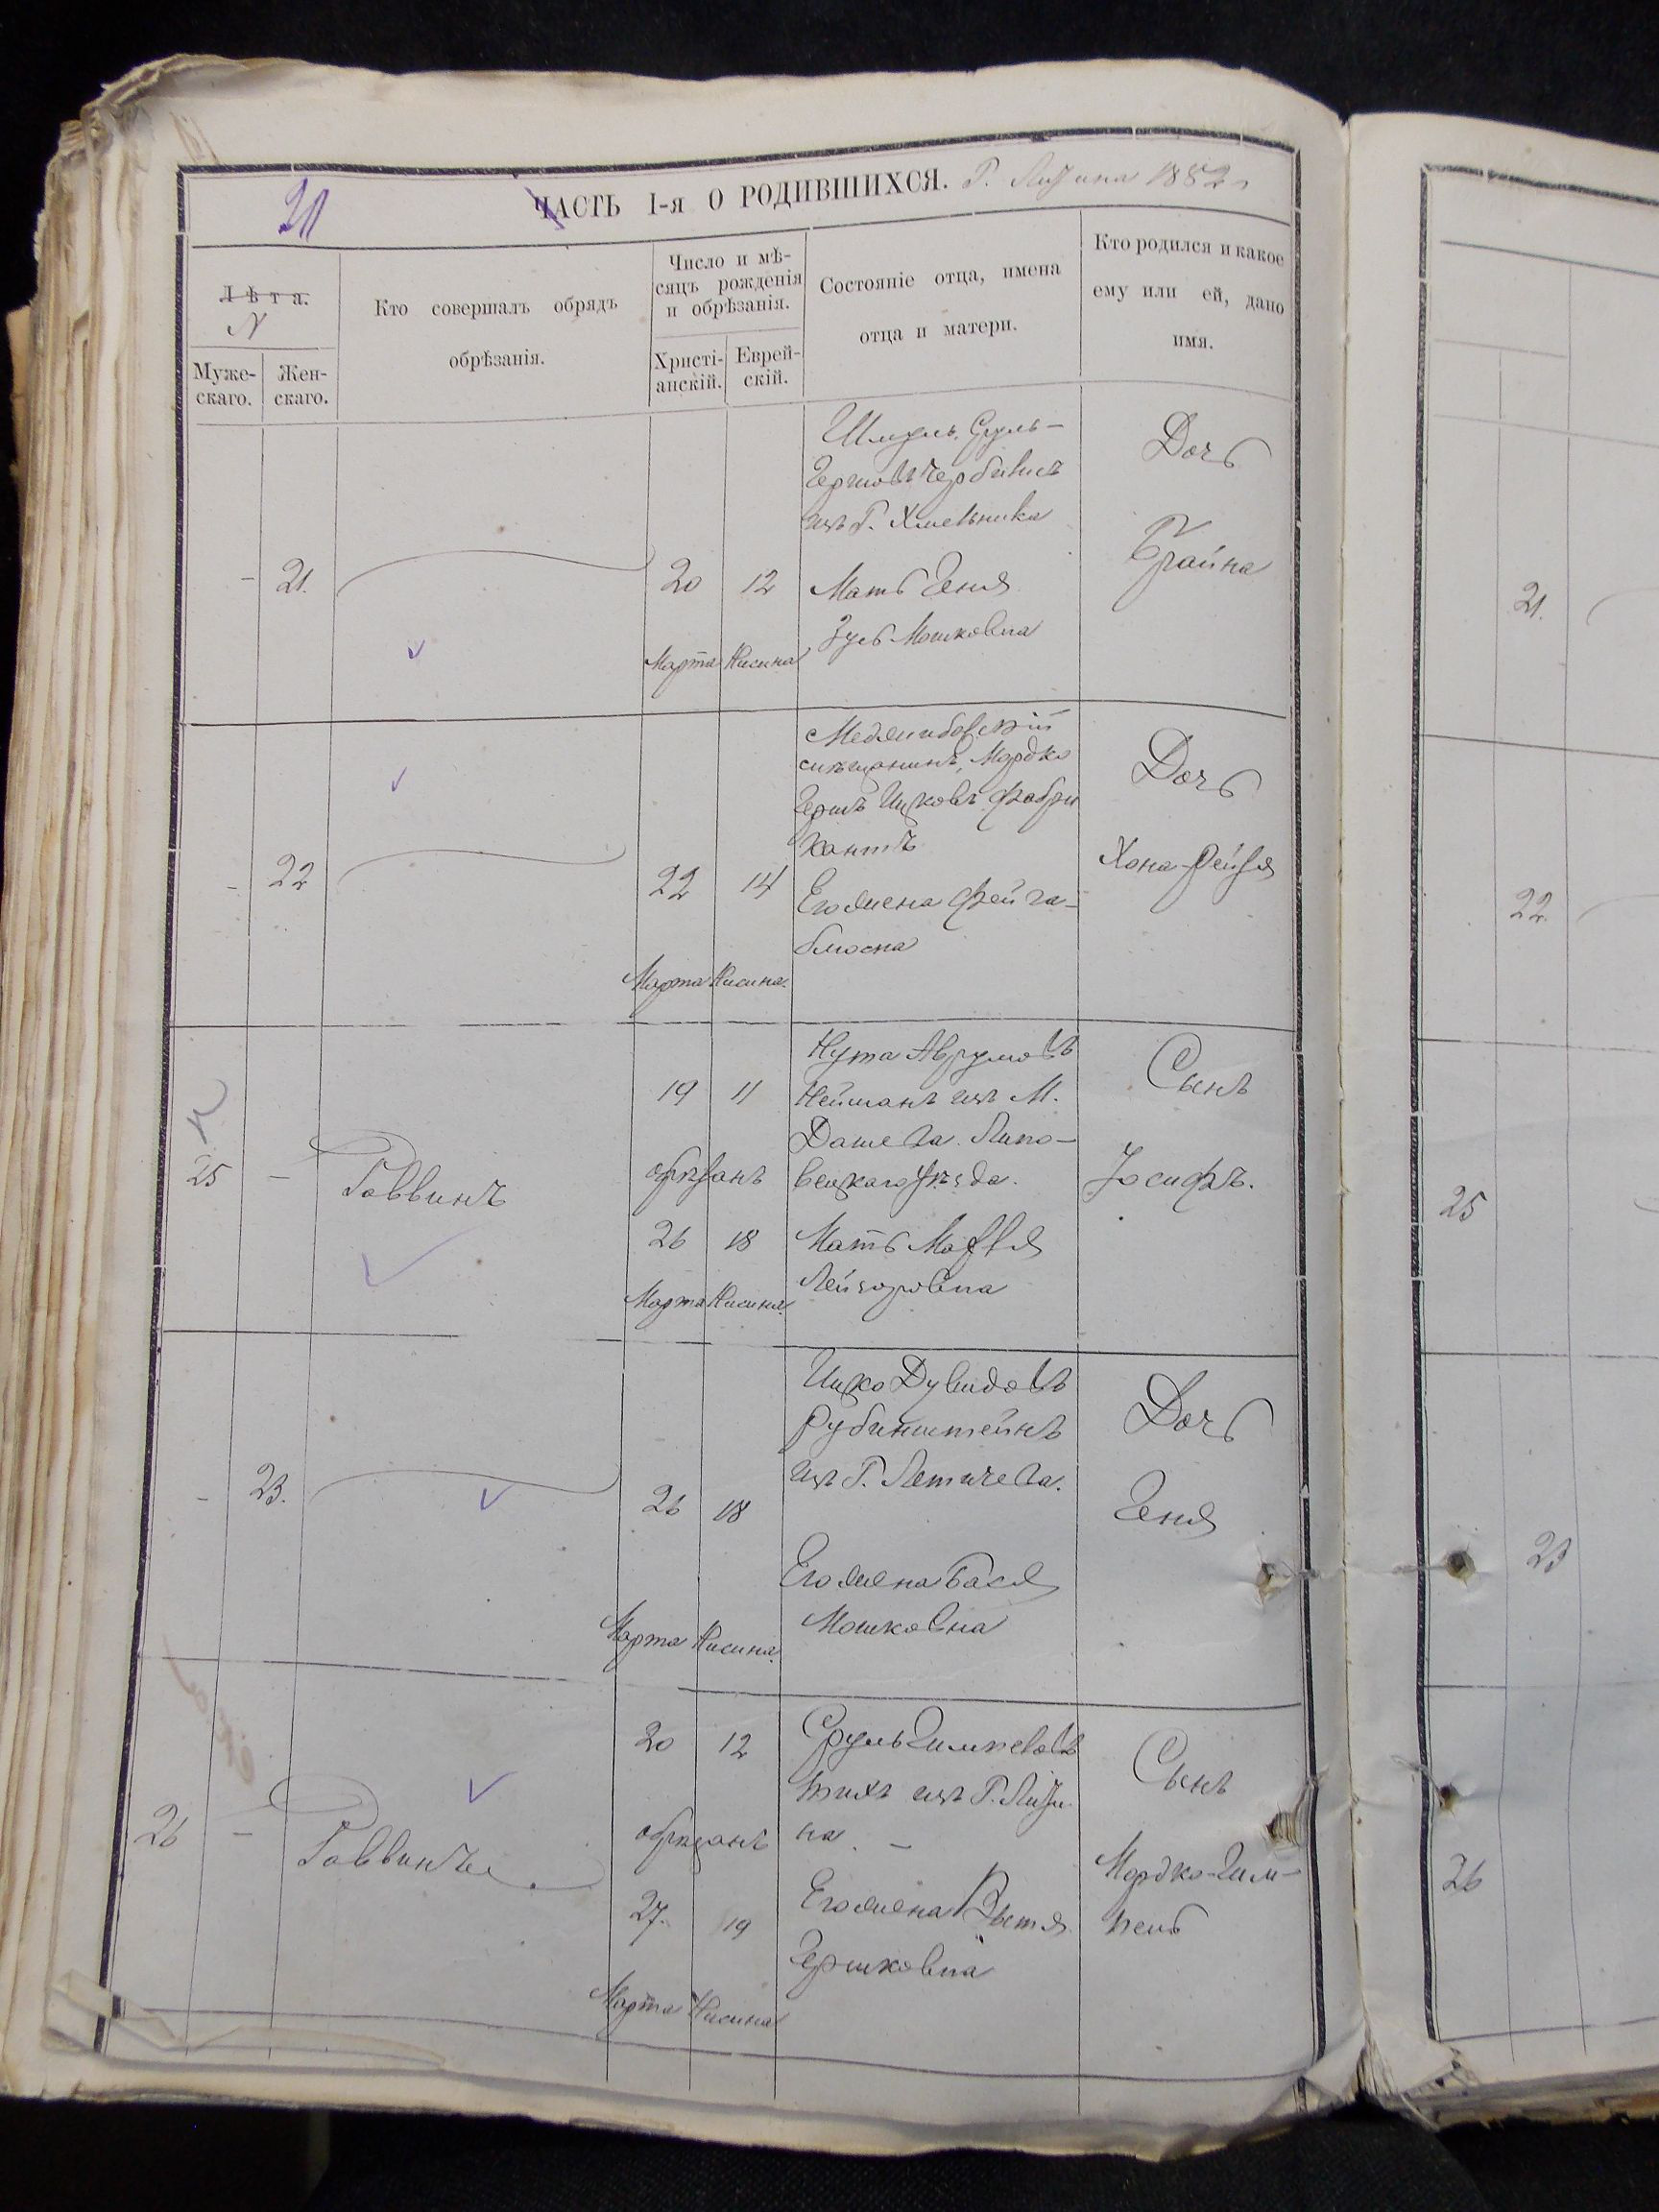 ЧАСТЬ I-я О РОДИВШИХСЯ. Г. Литина 1882 г
Лѣта.
N
Муже-
скаго.
Жен-
скаго.
Кто совершалъ обрядъ
обрѣзанія.
Число и мѣ-
сяцъ рожденія
и обрѣзанія.
Христі-
анскій.
Еврей-
скій.
Состояніе отца, имена
отца и матери.
Кто родился и какое
ему или ей, дано
имя.
- 21.
20 12
Марта Нисина
Шмуль Сруль-
Гершовъ
изъ Г. Хмельника
Мать Геня
Зусь-Мошковна
Дочь
Брайна
- 22
22 14
Марта Нисина.
Меджибовскій
мѣщанинъ, Мордко
Гершъ Ицковъ Фабри
кантъ
Его жена Фейга-
Блюма
Дочь
Хона-Рейзя
25 -
Раввинъ
19 11
обрѣзанъ
26 18
Марта Нисина.
Нута Аврумовъ
Нейманъ изъ М.
Дашева. Липо-
вецкаго уѣзда.
Мать
Лейзоровна
Сынъ
Іосифъ.
- 23.
26 18
Марта Нисина.
Ицко Дувидовъ
Рубинштейнъ
изъ Г. Летичева.
Его жена Бася
Мошковна
Дочь
Геня
26 -
Раввинъ
20 12
обрѣзанъ
27. 19
Марта Нисина
Сруль Гимпеловъ
изъ Г. Лити-
на. -
Его жена
Гершковна
Сынъ
Мордко-Гим-
пель
21.
22.
25
23
26